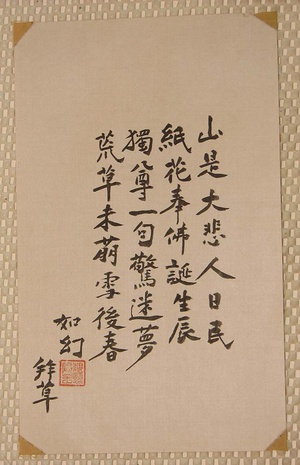 山是大悲人日民
紙花奉佛誕生辰
獨尊一句驚迷夢
荒草未萌雪後春
如幻
拜草